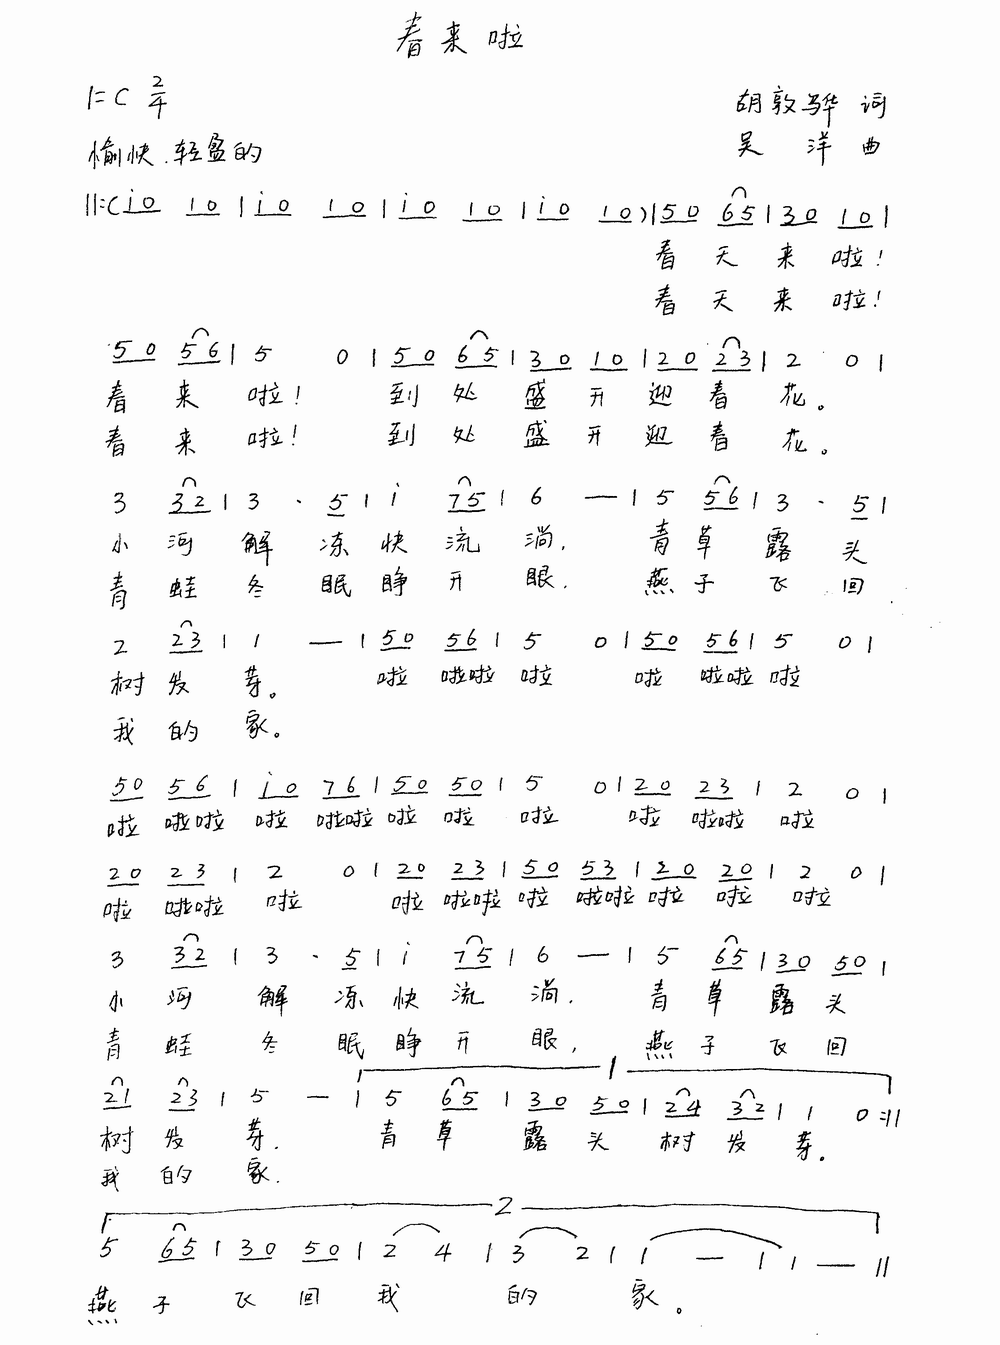 春来啦
1=C 2/4
胡敦骅 词
愉快.轻盈的
吴 洋 曲
||:(i0 10|i0 10|i0 10|i0 10)|50 65|30 10|
春 天 来 啦!
春 天 来 啦!
50 56|5 0|50 65|30 10|20 23|2 0|
春 来 啦! 到 处 盛 开 迎 春 花。
春 来 啦! 到 处 盛 开 迎 春 花。
3 32|3 · 5|i 75|6 —|5 56|3 · 5|
小 河 解 冻 快 流 淌, 青 草 露 头
青 蛙 冬 眠 睁 开 眼, 燕 子 飞 回
2 23|1 —|50 56|5 0|50 56|5 0|
树 发 芽。 啦 啦啦 啦 啦 啦啦 啦
我 的 家。
50 56|i0 76|50 50|5 0|20 23|2 0|
啦 啦啦 啦 啦啦 啦 啦 啦 啦 啦啦 啦
20 23|2 0|20 23|50 53|20 20|2 0|
啦 啦啦 啦 啦 啦啦 啦 啦啦 啦 啦 啦
3 32|3 · 5|i 75|6 —|5 65|30 50|
小 河 解 冻 快 流 淌, 青 草 露 头
青 蛙 冬 眠 睁 开 眼, 燕 子 飞 回
1
21 23|5 —|5 65|30 50|24 32|1 0:||
树 发 芽. 青 草 露 头 树 发 芽。
我 的 家.
2
5 65|30 50|2 4|3 2|1 —|1 —||
燕 子 飞 回 我 的 家。